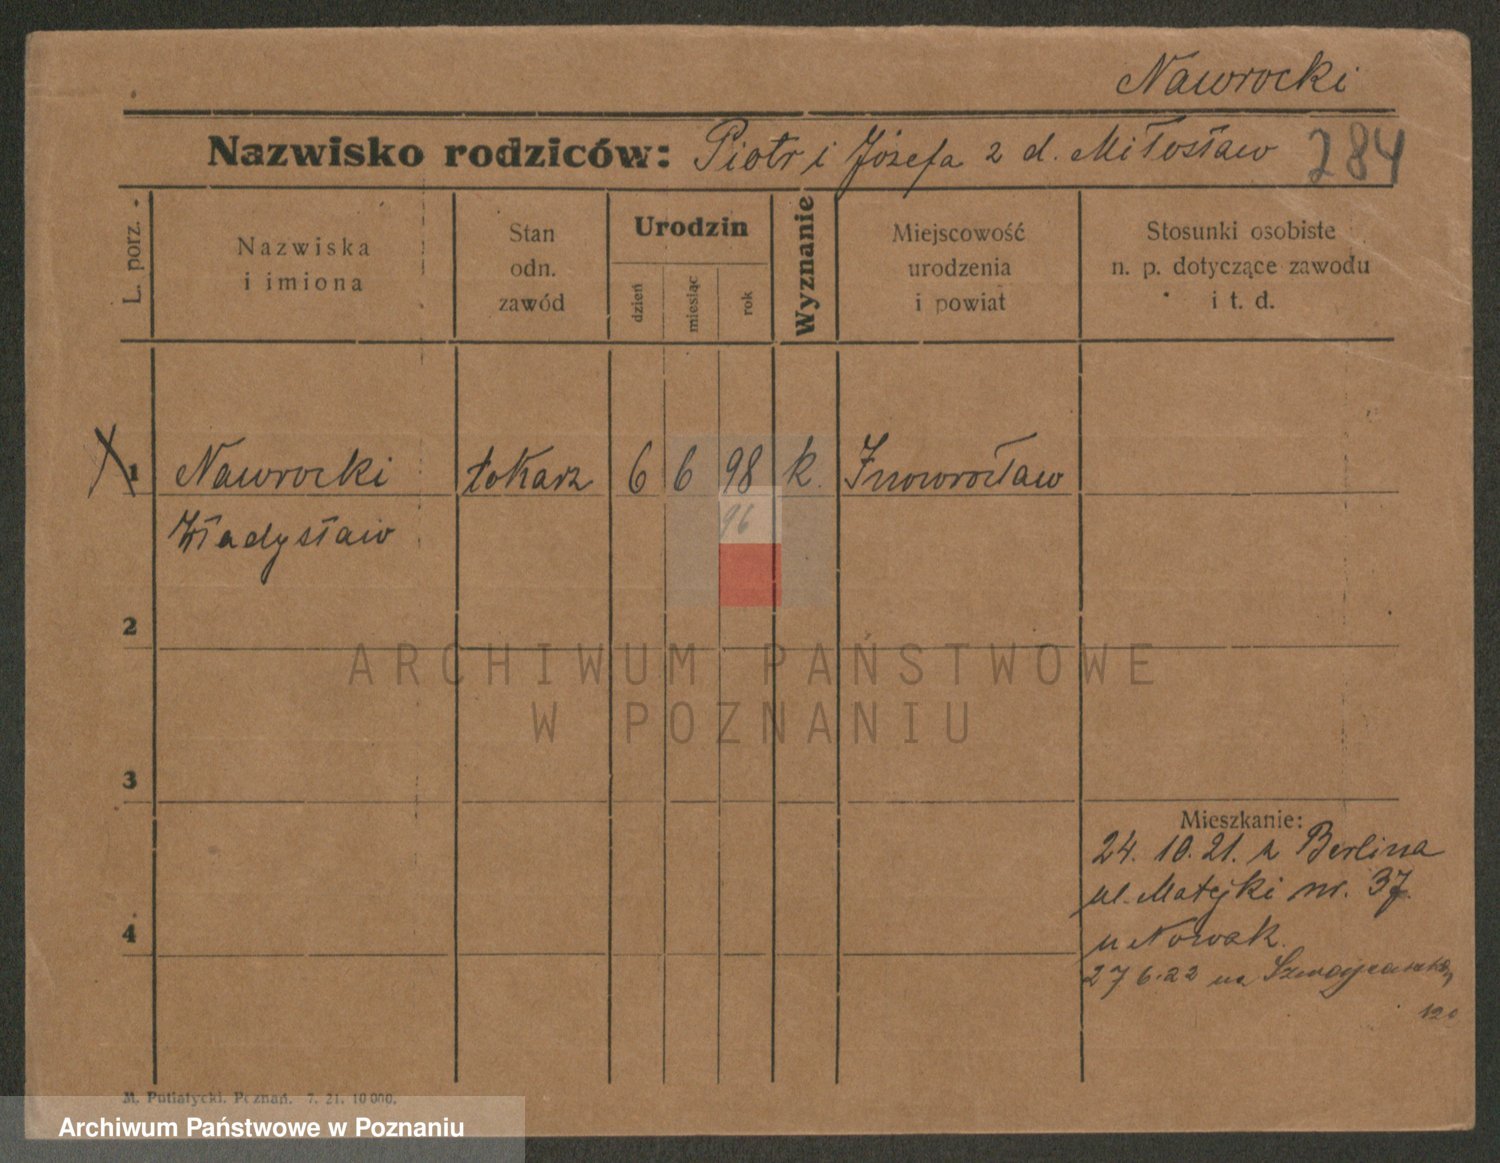 Nawrocki
Nazwisko rodziców: Piotr i Józefa z d. Miłosław 284
L. porz.
Nazwiska
i imiona
Stan
odn.
zawód
Urodzin
dzień
miesiąc
rok
Wyznanie
Miejscowość
urodzenia
i powiat
Stosunki osobiste
n. p. dotyczące zawodu
i t. d.
1 Nawrocki tokarz 6 6 98 k. Inowrocław
96
Władysław
2
ARCHIWUM PAŃSTWOWE
W POZNANIU
3
Mieszkanie:
24. 10. 21. z Berlina
ul. Matejki nr. 37.
u Nowak.
4
27 6.22 na
120
M. Putiatycki, Poznań. 7. 21. 10 000.
Archiwum Państwowe w Poznaniu